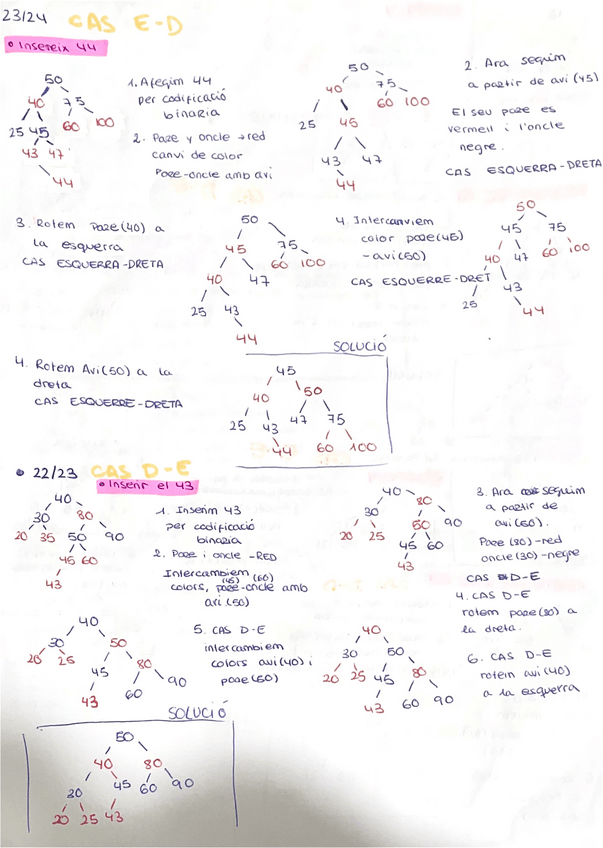 23/24 CAS E-D
• Insereix 44
50
40 75
25 45 60 100
43 47
44
1. Afegim 44
per codificació
binaria
2. Pare y oncle → red
canvi de color
Pare-oncle amb avi
50
40 75
60 100
25 45
43 47
44
2. Ara seguim
a partir de avi (45)
El seu pare es
vermell i l'oncle
negre.
CAS ESQUERRA-DRETA
3. Rotem Pare(40) a
la esquerra
CAS ESQUERRA-DRETA
50
45 75
60 100
40 47
25 43
44
4. Intercanviem
color pare(45)
-avi(50)
CAS ESQUERRE-DRET
50
45 75
40 47 60 100
43
25 44
4. Rotem Avi(50) a la
dreta
CAS ESQUERRE-DRETA
SOLUCIÓ
45
40 50
25 43 47 75
44 60 100
• 22/23 CAS D-E
• Inserir el 43
40
30 80
20 35 50 90
45 60
43
1. Inserim 43
per codificació
binaria
2. Pare i oncle -RED
Intercambiem
(45) (60)
colors, pare-oncle amb
avi (50)
40 80
30
20 25 50 90
45 60
43
3. Ara seguim
a partir de
avi (50).
Pare (80)-red
oncle(30)-negre
CAS D-E
4. CAS D-E
rotem pare(80) a
la dreta.
40
30 50
20 25 45 80
43 60 90
5. CAS D-E
intercambiem
colors avi(40) i
pare(50)
40
30 50
20 25 45 80
43 60 90
6. CAS D-E
rotem avi(40)
a la esquerra
SOLUCIÓ
50
40 80
30 45 60 90
20 25 43